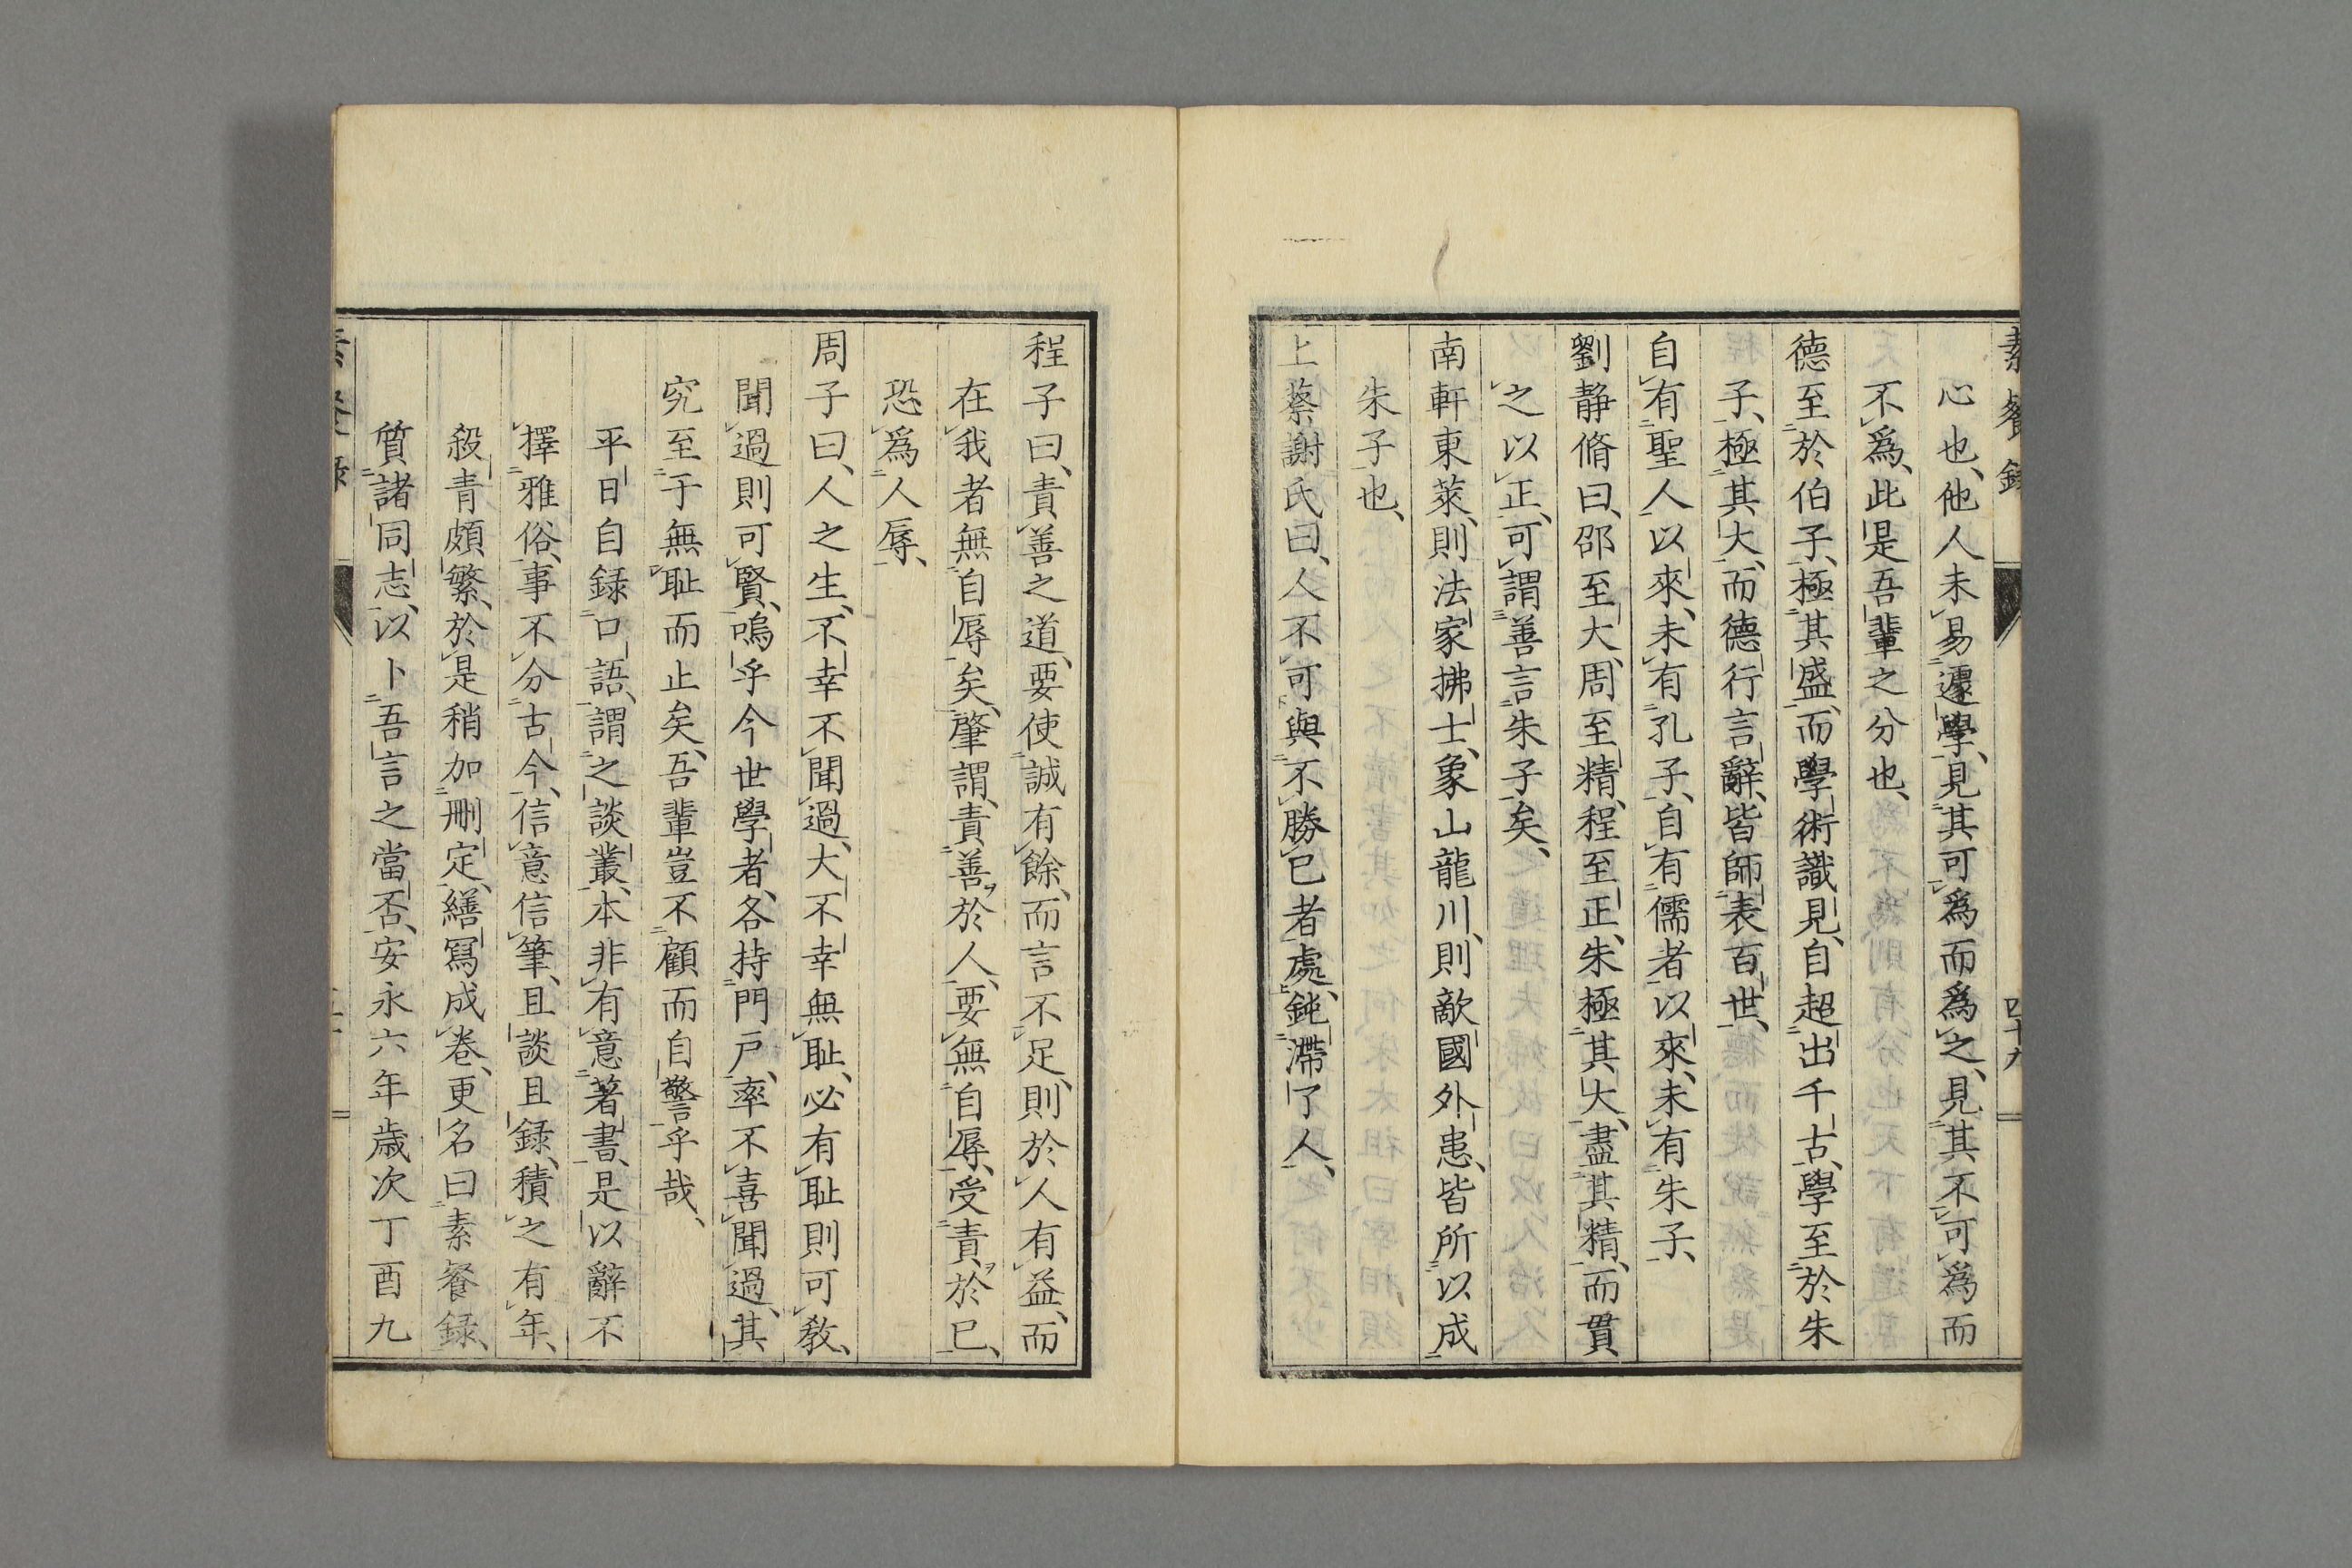 素餐録
四十九
心也、他人未易遽學、見其可爲而爲之、見其不可爲而
不爲、此是吾輩之分也、
德至於伯子、極其盛、而學術識見、自超出千古、學至於朱
子、極其大、而德行言辭、皆師表百世、
自有聖人以來、未有孔子、自有儒者以來、未有朱子、
劉静脩曰、邵至大、周至精、程至正、朱極其大、盡其精、而貫
之以正、可謂善言朱子矣、
南軒東萊、則法家拂士、象山龍川、則敵國外患、皆所以成
朱子也、
上蔡謝氏曰、人不可與不勝已者處、鈍滯了人、
程子曰、責善之道、要使誠有餘、而言不足、則於人有益、而
在我者無自辱矣、肇謂、責善於人、要無自辱、受責於已、
恐爲人辱、
周子曰、人之生、不幸不聞過、大不幸無耻、必有耻則可敎、
聞過則可賢、嗚乎今世學者、各持門戸、率不喜聞過、其
究至于無耻而止矣、吾輩豈不顧而自警乎哉、
平日自録口語、謂之談叢、本非有意著書、是以辭不
擇雅俗、事不分古今、信意信筆、且談且録、積之有年、
殺青頗繁、於是稍加刪定、繕寫成卷、更名曰素餐録、
質諸同志、以卜吾言之當否、安永六年歳次丁酉九